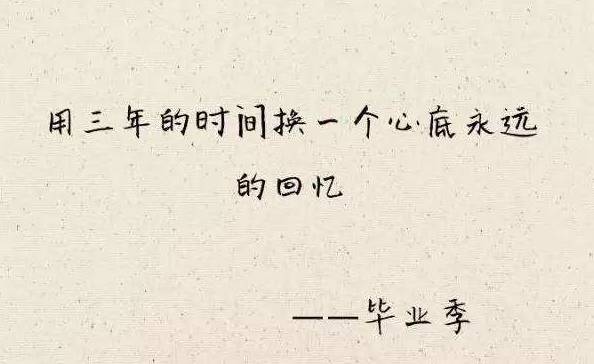 用三年的时间换一个心底永远
的回忆
——毕业季